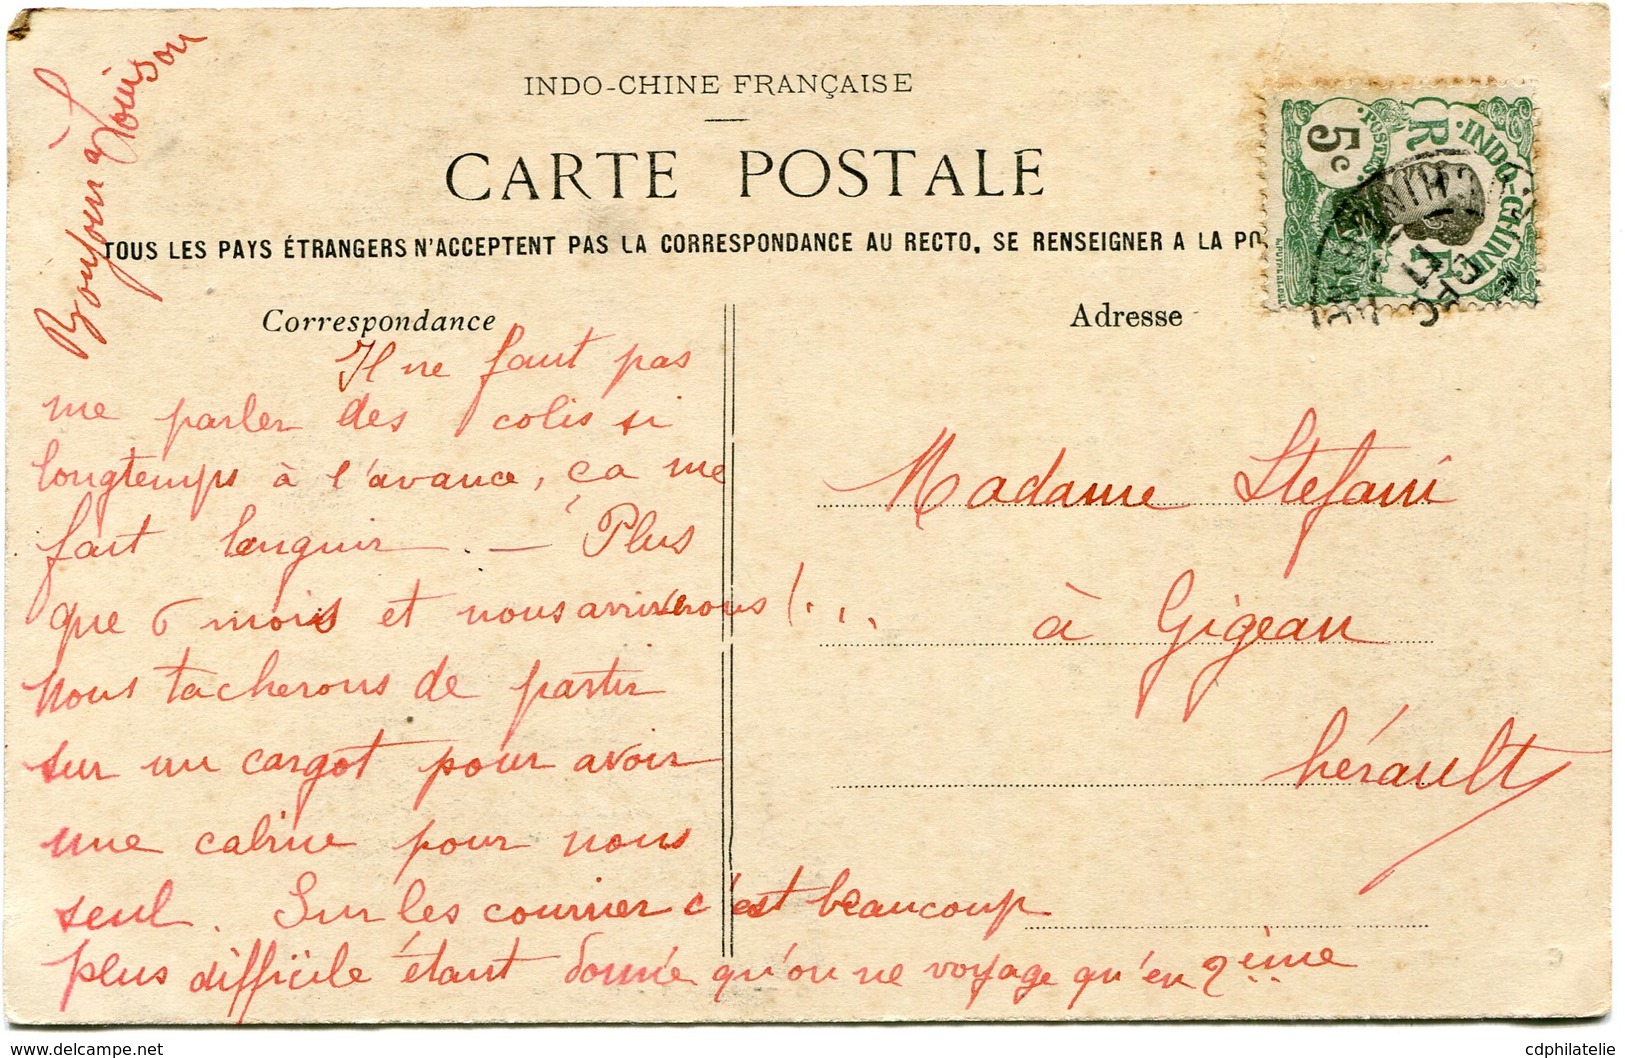 INDO-CHINE FRANÇAISE
CARTE POSTALE
TOUS LES PAYS ÉTRANGERS N'ACCEPTENT PAS LA CORRESPONDANCE AU RECTO, SE RENSEIGNER A LA PO
Bonjour à Louison
Correspondance
Il ne faut pas
me parler des colis si
longtemps à l'avance, ça me
fait languir. — Plus
que 6 mois et nous arriverons !...
Nous tacherons de partir
sur un cargot pour avoir
une cabine pour nous
seul. Sur les courrier c'est beaucoup
plus difficile étant donnée qu'on ne voyage qu'en 2ième
Adresse
Madame Stefani
à Gigean
hérault
INDO-CHINE
RF
5c
POSTES
cdphilatelie
www.delcampe.net